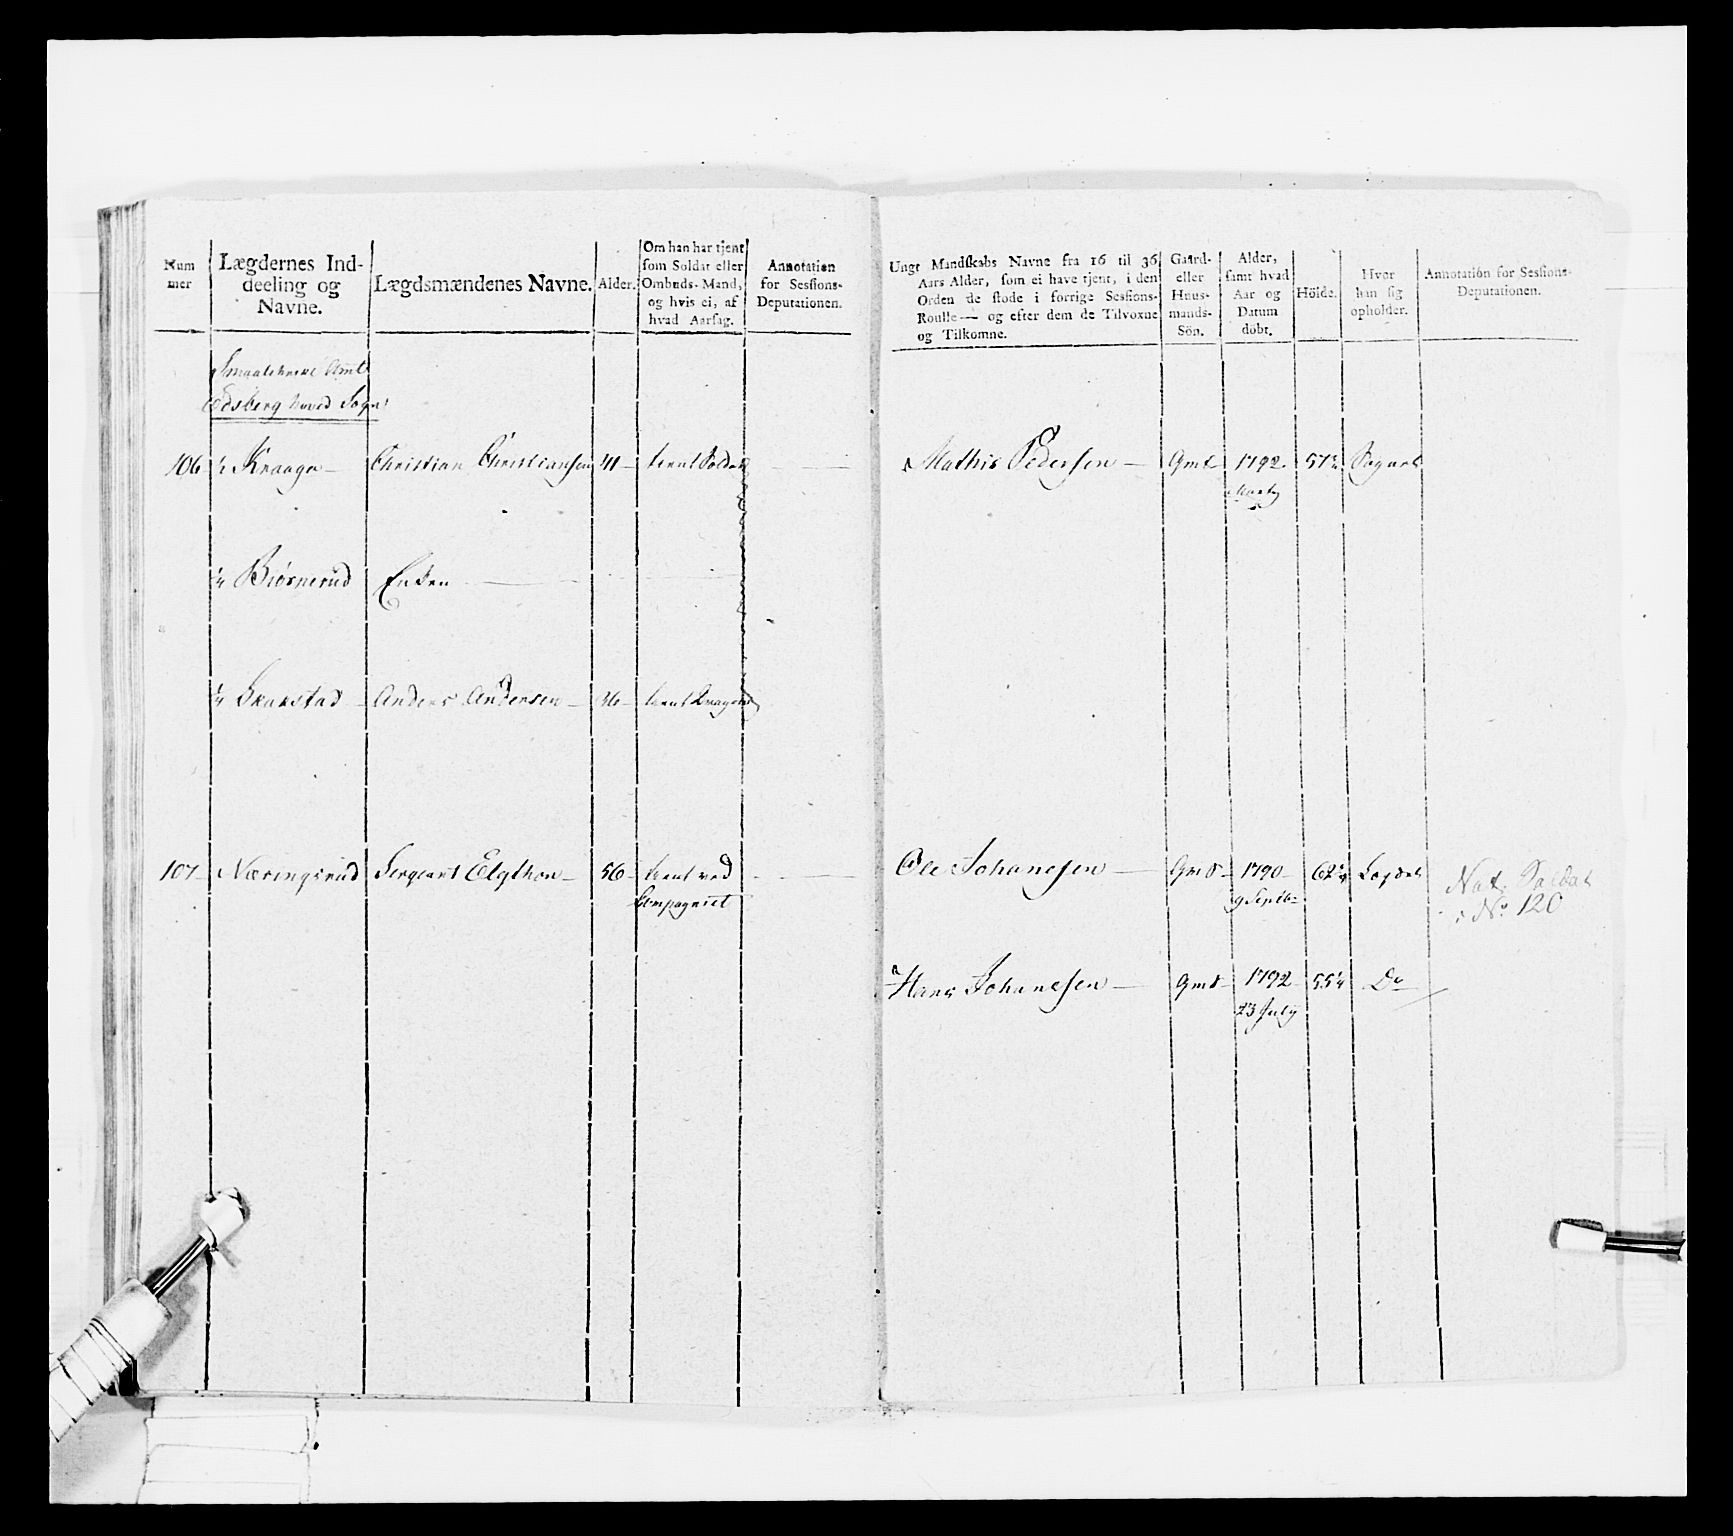 Num
mer
Lægdernes Ind-
deeling og
Navne.
Lægdsmændenes Navne.
Alder.
Om han har tjent
som Soldat eller
Ombuds-Mand,
og hvis ei, af
hvad Aarsag.
Annotation
for Sessions-
Deputationen.
Ungt Mandskabs Navne fra 16 til 36
Aars Alder, som ei have tjent, i den
Orden de stode i forrige Sessions-
Roulle — og efter dem de Tilvoxne
og Tilkomne.
Gaard-
eller
Huus-
mands-
Sön.
Alder,
samt hvad
Aar og
Datum
döbt.
Höide.
Hvor
han sig
opholder.
Annotation for Sessions-
Deputationen.
Smaalehnene Amt
Edsberg hoved Sogn
106 Kraager — Christian Christiansen 41 — tient Soldat — Mathis Pedersen — Gms 1792
Biørnerud Enken
Anders Andersen — 36 — tient Dragon
107 — Næringsrud Sergeant Elgthon — 56 — tient ved — Ole Johanesen — Gms — 1790 — 62
Compagniet 9 Septbr
Nat. Soldat
i No 120
Hans Johanesen — Gms — 1792 — Do
23 July